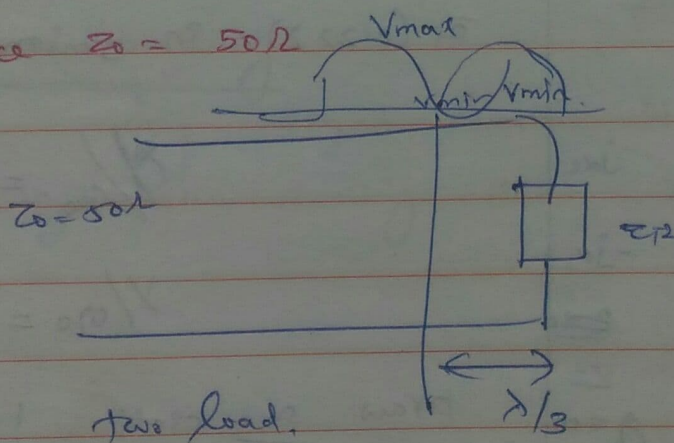 Z₀ = 50Ω
Vmax
Vmin Vmin.
Z₀ = 50Ω
two load.
λ/3